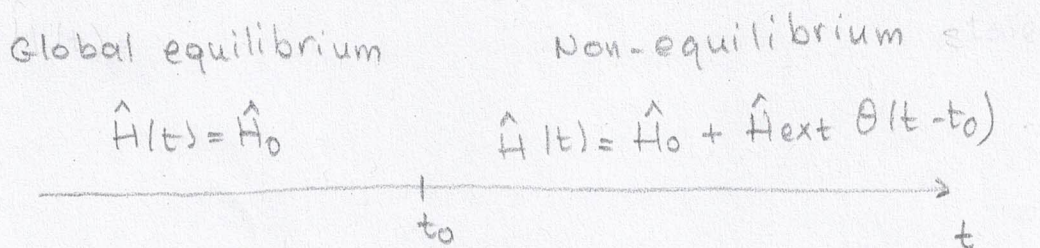 Global equilibrium Non-equilibrium
Ĥ(t) = Ĥ₀ Ĥ(t) = Ĥ₀ + Ĥext θ(t-t₀)
t₀ t